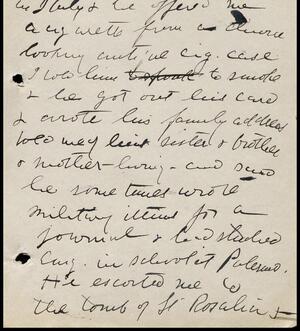 in Italy & he offered me
a cigarette from a divine
looking antique cig. case
I told him to smoke
& he got out his card
& wrote his family address
told me of his sister & brother
& mother - living - and said
he sometimes wrote
military items for a
journal & had studied
Eng. in school at Palermo.
He escorted me to
the tomb of St Rosalia &